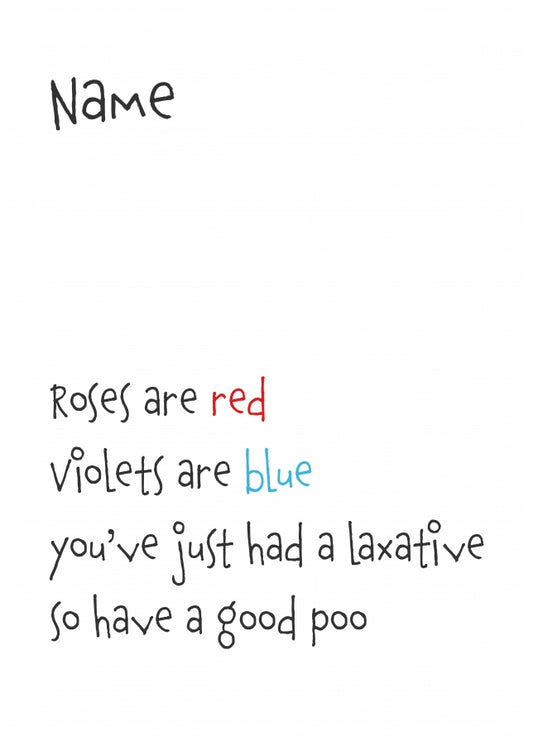 Name
Roses are red
Violets are blue
you've just had a laxative
so have a good poo